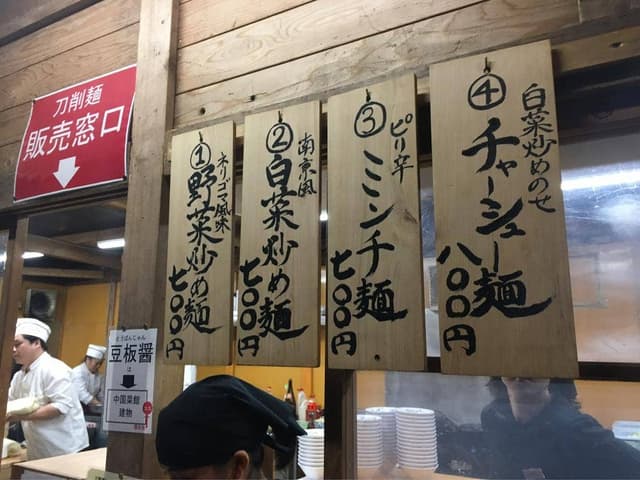 刀削麺
販売窓口
①
ネリゴマ風味
野菜炒め麺
七〇〇円
②
南京風
白菜炒め麺
七〇〇円
③
ピリ辛
ミンチ麺
七〇〇円
④
白菜炒めのせ
チャーシュー麺
八〇〇円
とうばんじゃん
豆板醤
は
中国菜館
建物